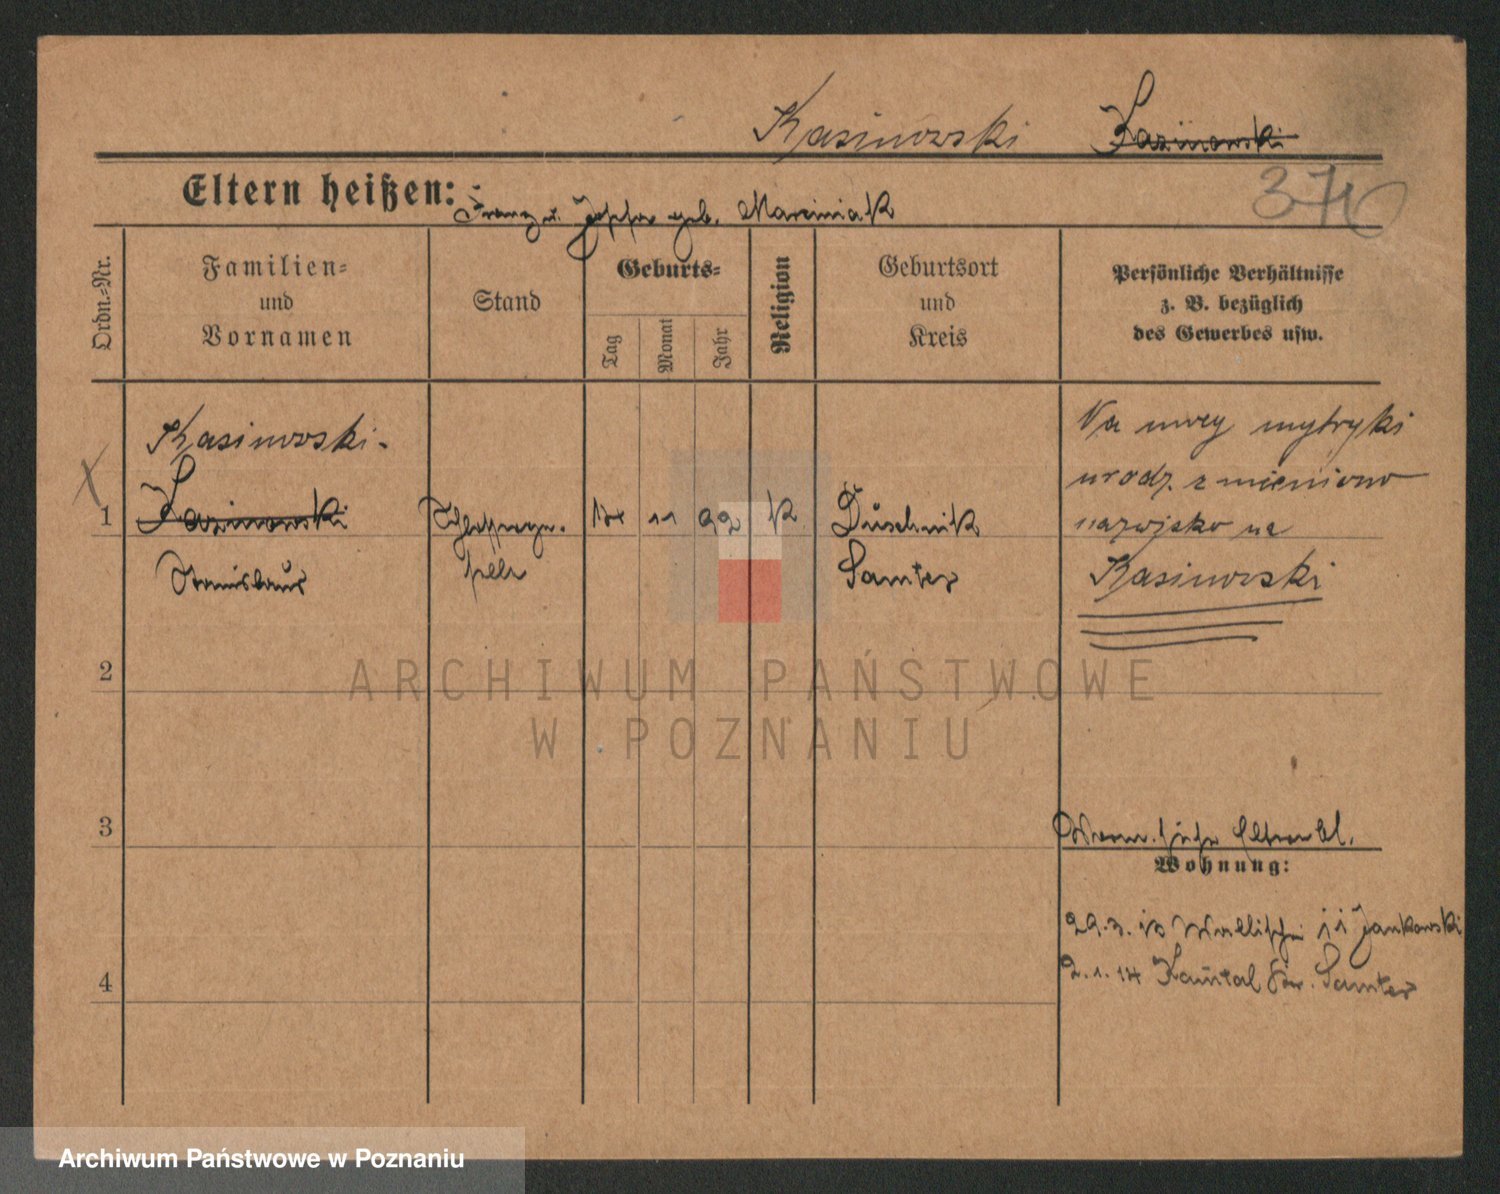 Kasinowski Kazimowski
Eltern heißen: Franz u. Josefa geb. Marciniak
374
Ordn.-Nr.
Familien-
und
Vornamen
Stand
Geburts-
Tag
Monat
Jahr
Religion
Geburtsort
und
Kreis
Persönliche Verhältnisse
z. B. bezüglich
des Gewerbes usw.
Kasinowski
X
1
Kazimowski
Stanislaus
14 11 92 K
Duschnik
Samter
Na mocy mytryki
urodz. zmieniono
nazwisko na
Kasinowski
2
3
4
Wohnung:
29.3. 10 Wallischei 11 Jankowski
2.1.14 Samter
ARCHIWUM PAŃSTWOWE
W POZNANIU
Archiwum Państwowe w Poznaniu